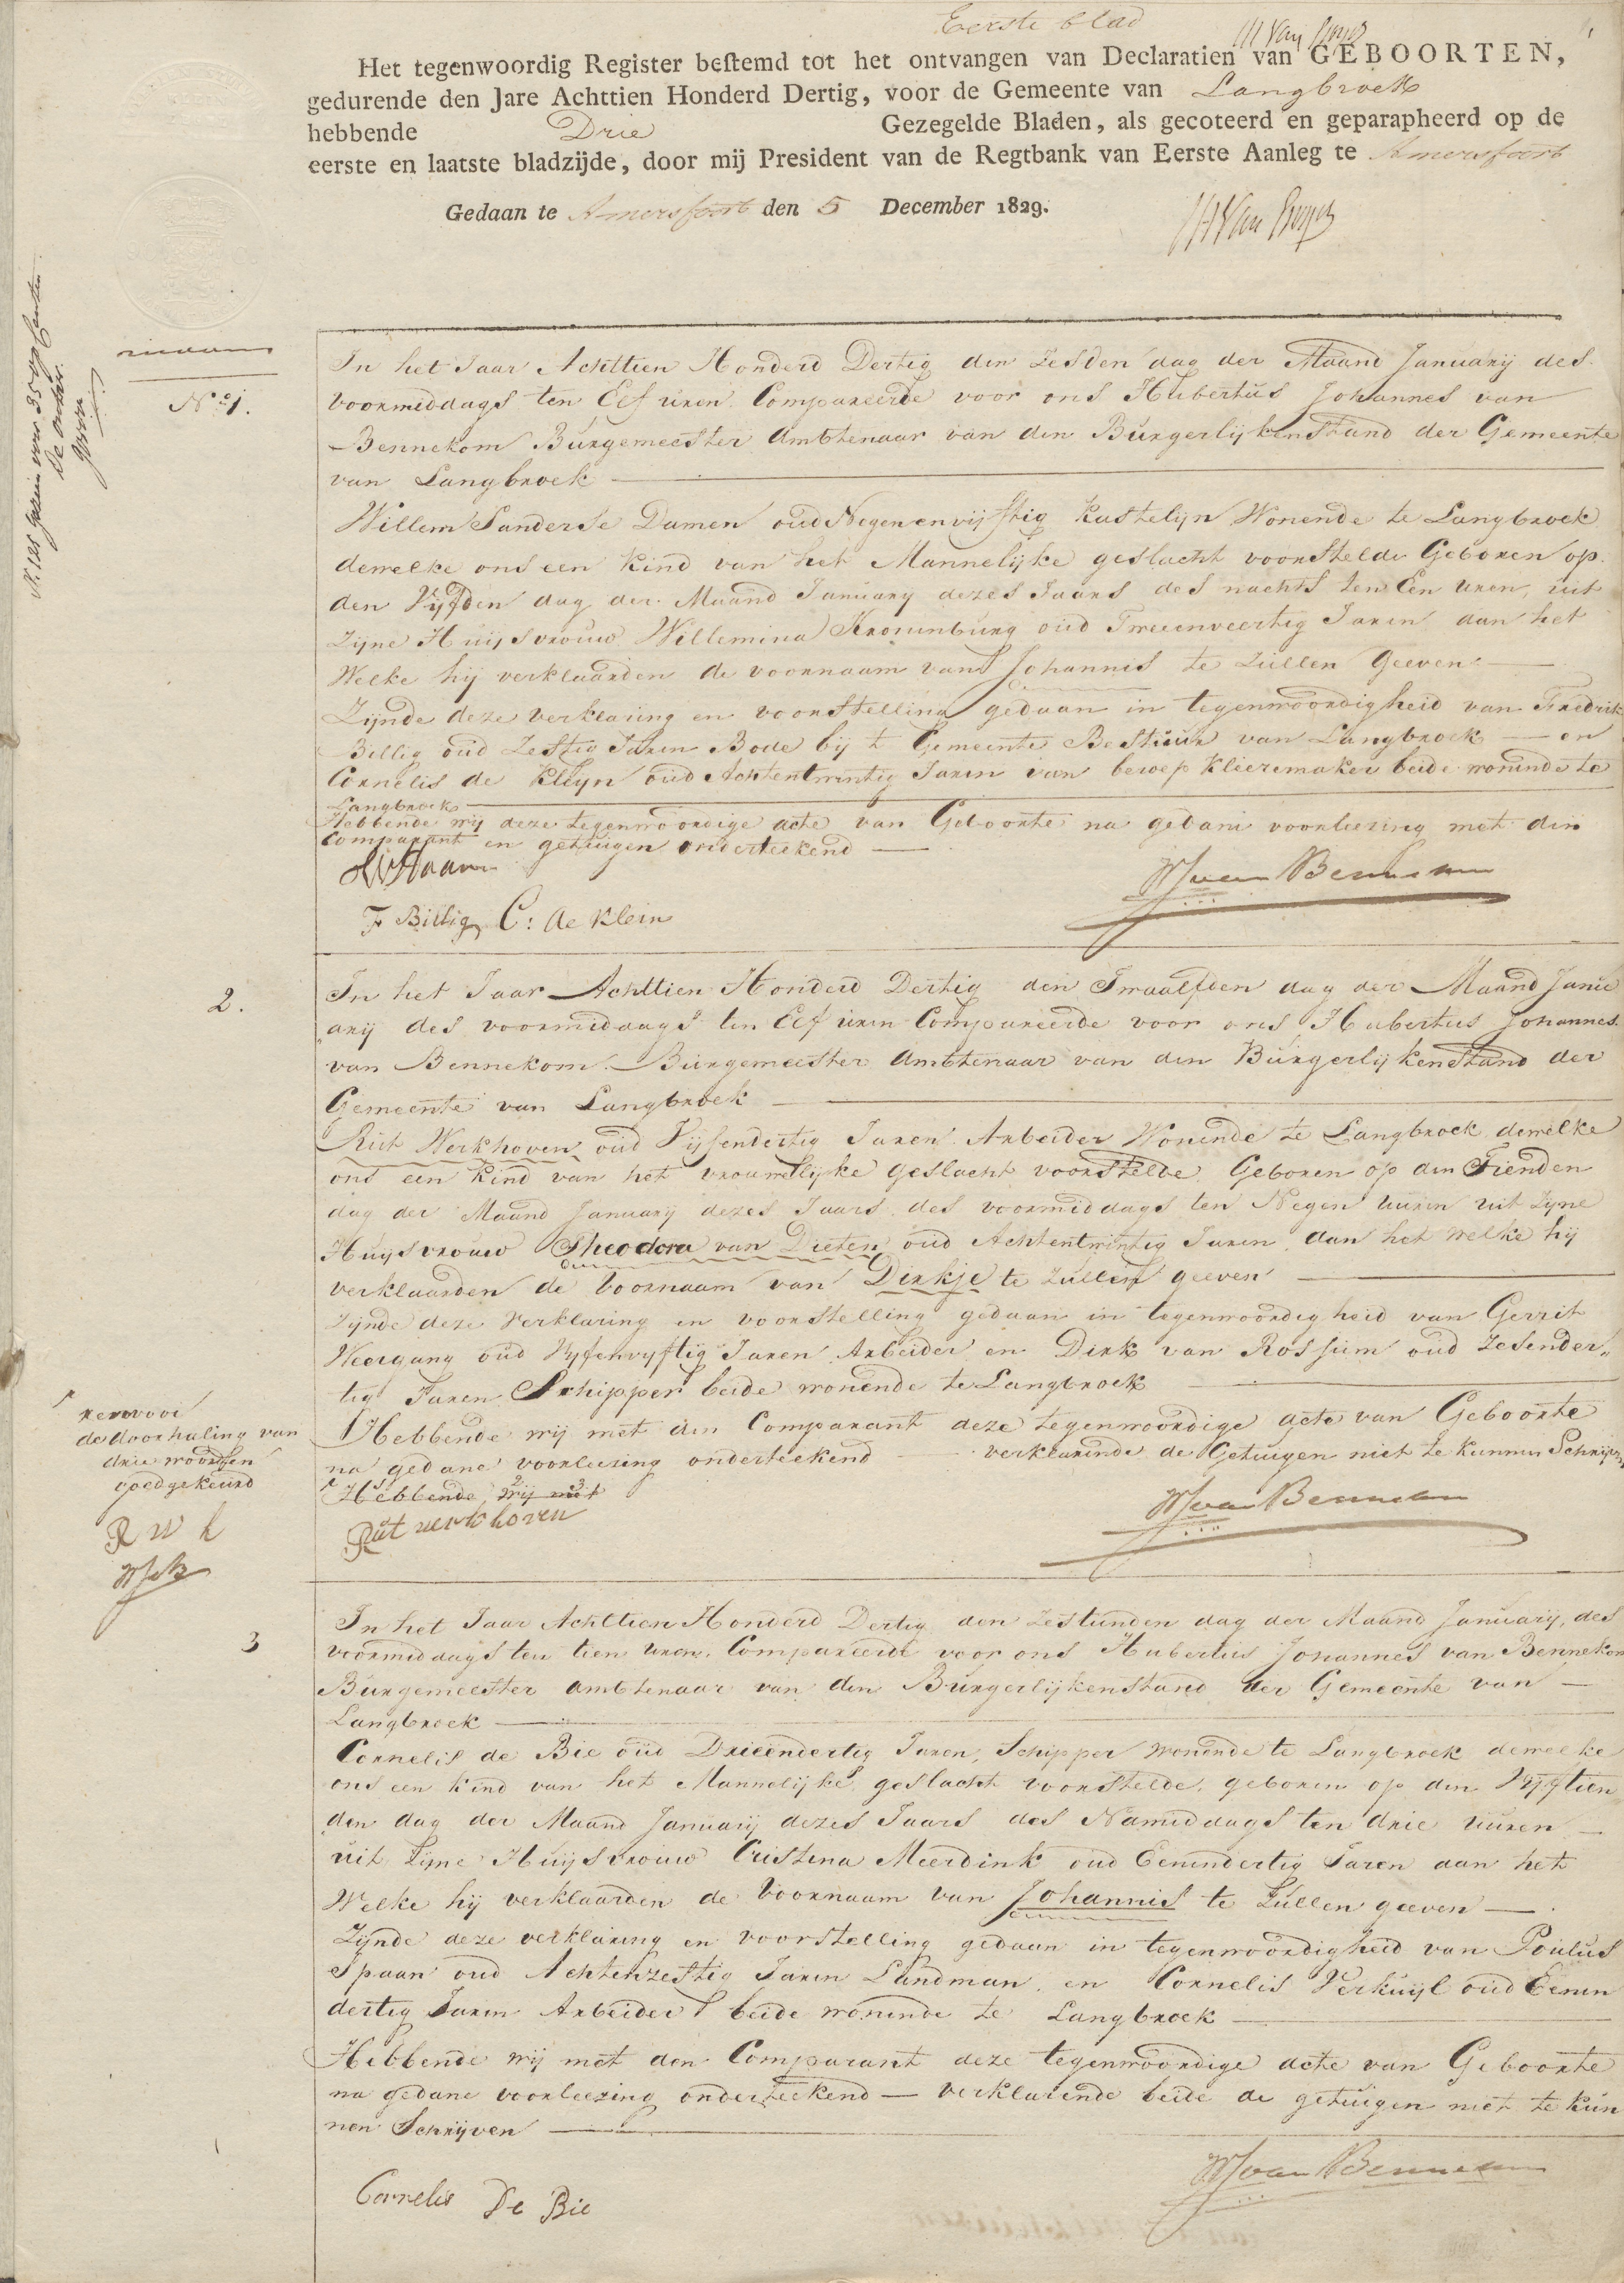 Eerste blad
Het tegenwoordig Register bestemd tot het ontvangen van Declaratien van GEBOORTEN,
gedurende den Jare Achttien Honderd Dertig, voor de Gemeente van Langbroek
hebbende Drie Gezegelde Bladen, als gecoteerd en geparapheerd op de
eerste en laatste bladzijde, door mij President van de Regtbank van Eerste Aanleg te Amersfoort
Gedaan te Amersfoort den 5 December 1829.
No 1.
In het Jaar Achttien Honderd Dertig den Zesden dag der Maand Januarij des
voormiddags ten Elf uren Compareerde voor ons Hubertus Johannes van
Bennekom Burgemeester Ambtenaar van den Burgerlijkenstand der Gemeente
van Langbroek
Willem Sanderse Damen oud Negenenvijftig kastelijn Wonende te Langbroek
dewelke ons een kind van het Mannelijke geslacht voorstelde Geboren op
den Vijfden dag der Maand January dezes Jaars des nachts ten Een uren, uit
Zijne Huijsvrouw Willemina Kronenburg oud Tweeenveertig Jaren aan het
Welke hij verklaarden de voornaam van Johannis te zullen Geeven
Zijnde deze verklaring en voorstelling gedaan in tegenwoordigheid van Fredrik
Billig oud Zestig Jaren Bode bij t Gemeente Bestuur van Langbroek en
Cornelis de Kleyn oud Achtentwintig Jaren van beroep Kleeremaker beide wonende te
Langbroek
Hebbende wij deze tegenwoordige acte van Geboorte na gedane voorleezing met den
Comparant en getuigen onderteekend
F Billig C: de Klein
HJ van Bennekom
2.
In het Jaar Achttien Honderd Dertig den Twaalfden dag der Maand Janu
arij des voormiddags ten Elf uren Compareerde voor ons Hubertus Johannes
van Bennekom Burgemeester Ambtenaar van den Burgerlijkenstand der
Gemeente van Langbroek
Rut Werkhoven oud Vijfendertig Jaren Arbeider Wonende te Langbroek dewelke
ons een kind van het vrouwelijke geslacht voorstelde Geboren op den Tienden
dag der Maand January dezes Jaars des voormiddags ten Negen uuren uit Zijne
Huijsvrouw Theodora van Dieten oud Achtentwintig Jaren aan het welke hij
verklaarden de voornaam van Dirkje te zullen geeven
Zijnde deze Verklaring en voorstelling gedaan in tegenwoordigheid van Gerrit
Weergang oud Vijfenvyftig Jaren Arbeider en Dirk van Rossum oud Zesender„
tig Jaren Schipper beide wonende te Langbroek
Hebbende wij met den Comparant deze tegenwoordige acte van Geboorte
na gedane voorleezing onderteekend verklarende de Getuigen niet te kunnen Schrijven
Hebbende wij met
Rut werkhoven
HJ van Bennekom
de doorhaling van
drie woorden
goedgekeurd
R W h
3
In het Jaar Achttien Honderd Dertig den Zestienden dag der Maand January, des
voormiddags ten tien uren Compareerde voor ons Hubertus Johannes van Bennekom
Burgemeester Ambtenaar van den Burgerlijkenstand der Gemeente van
Langbroek
Cornelis de Bie oud Drieëndertig Jaren, Schipper wonende te Langbroek dewelke
ons een kind van het Mannelijke geslacht voorstelde, geboren op den Vijftien
den dag der Maand January dezes Jaars des Namiddags ten drie uuren
uit Zijne Huijsvrouw Cristina Meerdink oud Eenendertig Jaren aan het
Welke hij verklaarden de Voornaam van Johannis te Zullen geeven
Zijnde deze verklaring en voorstelling gedaan in tegenwoordigheid van Poulus
Spaan oud Achtenzestig Jaren Landman, en Cornelis Verkuijl oud Eenen
dertig Jaren Arbeider beide wonende te Langbroek
Hebbende wij met den Comparant deze tegenwoordige acte van Geboorte
na gedane voorleezing onderteekend verklarende beide de getuigen niet te kun
nen Schrijven
HJ van Bennekom
Cornelis De Bie